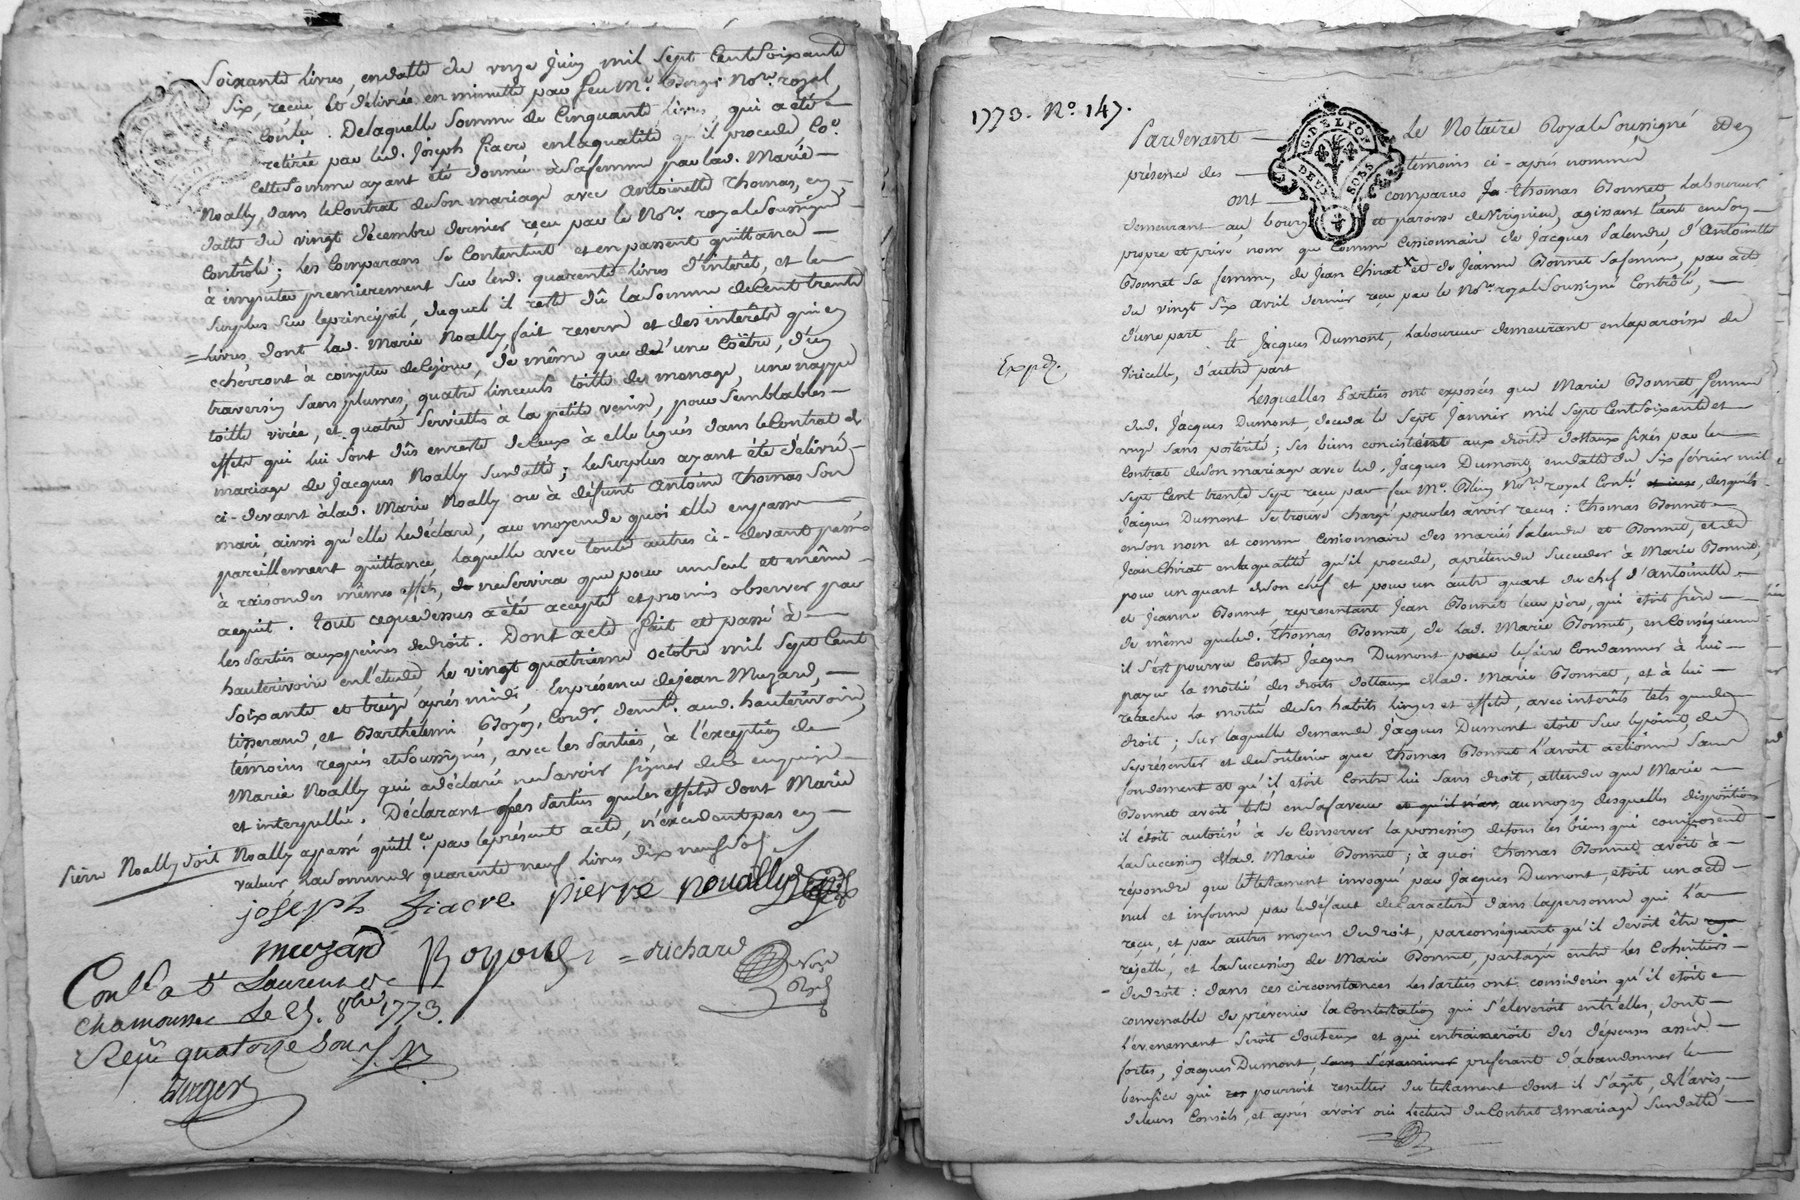 soixante livres, en datte du onze juin mil sept cent soixante
six, reçue et délivrée en minutte par feu Me. Nore. royal
Conlé. De laquelle somme de Cinquante livres, qui a été
retirée par led. Joseph fiacre en la qualité qu'il procede
Cette somme ayant été donnée à sa femme par lad. Marie
Noally, dans le Contrat de son mariage avec Antoinette Thomas, en
datte du vingt décembre dernier reçu par le Nore. royal soussigné
Contrôlé; les Comparans se Contentent et en passent quittance
à imputer premierement sur lesd. quarente livres d'interêt, et le
surplus sur le principal, duquel il reste dû la somme de Cent trente
livres, dont lad. Marie Noally fait reserve et des interêts qui en
échérront à compter de ce jour, de même que d'une Coëtre, d'un
traversin sans plumes, quatre linceuls toille de menage, une nappe
toille virée, et quatre serviettes à la petite venise, pour semblables
effets qui lui sont dûs en reste de Ceux à elle legués dans le Contrat de
mariage de Jacques Noally susdatté; le surplus ayant été délivré
ci-devant à lad. Marie Noally ou à défunt Antoine Thomas son
mari, ainsi qu'elle le déclare, au moyen de quoi elle en passe
pareillement quittance, laquelle avec toute autres ci-devant passée
à raison des mêmes effets, ne servira que pour un seul et même
acquit. Tout ce que dessus a été accepté et promis observer par
les Parties aux peines de droit. Dont acte fait et passé à
hauterivoire en l'étude le vingt quatrieme octobre mil sept Cent
soixante et treize après midi, En présence de jean Muzard,
tisserand, et Barthelemi Boyon, Cordr. demt. aud. hauterivoire
témoins requis et soussignés, avec les Parties, à l'exception de
Marie Noally qui a déclaré ne savoir signer de ce enquise
et interpellée. Déclarant les Parties que les effets dont Marie
Pierre Noally doit Noally a passé quitte. par le présent acte, n'excedent pas en
valeur la somme de quarente neuf livres dix neuf sols
joseph fiacre pierre noually
muzard Boyon richard
Conlé. a St Laurent de
chamousset Le 25. 8bre 1773.
Reçu quatorze sous
1773. No. 147.
G. DE LYON
DEUX SOLS
Pardevant le Notaire Royal soussigné et en
présence des témoins ci-après nommés
ont comparus Thomas Bonnet Laboureur
demeurant au bourg et paroisse de Virignieu, agissant tant en son
propre et privé nom que comme Cessionnaire de Jacques Palendre, d'Antoinette
Bonnet sa femme, de Jean Chirat et de Jeanne Bonnet sa femme, par acte
du vingt six avril dernier reçu par le Nore. royal soussigné Contrôlé,
d'une part. Et Jacques Dumont, Laboureur demeurant en la paroisse de
Viricelle, d'autre part
Expéd.
Lesquelles Parties ont exposés que Marie Bonnet femme
dud. Jacques Dumont, deceda le sept janvier mil sept Cent soixante et
onze sans posterité; ses biens concistent aux droits dottaux fixés par le
Contrat de son mariage avec led. Jacques Dumont, en datte du six février mil
sept Cent trente sept reçu par feu Me. Nore. royal Conlé. desquels
Jacques Dumont se trouve chargé pour les avoir reçus: Thomas Bonnet
en son nom et comme Cessionnaire des mariés Palendre et Bonnet, et de
Jean Chirat en la qualité qu'il procede, a prétendu succeder à Marie Bonnet,
pour un quart de son chef et pour un autre quart du chef d'Antoinette
et Jeanne Bonnet, representant Jean Bonnet leur père, qui étoit frère
de même que led. Thomas Bonnet, de lad. Marie Bonnet, en Conséquence
il s'est pourvu Contre Jacques Dumont pour le faire Condamner à lui
payer la moitié des droits dottaux de lad. Marie Bonnet, et à lui
relacher la moitié de ses habits linges et effets, avec intérêts tels que de
droit; sur laquelle demande Jacques Dumont étoit sur le point de
se présenter et de soûtenir que Thomas Bonnet l'avoit actionné sans
fondement et qu'il étoit Contre lui sans droit, attendu que Marie
Bonnet avoit testé en sa faveur au moyen desquelles dispositions
il étoit autorisé à se Conserver la possession de tous les biens qui composent
la succession de lad. Marie Bonnet; à quoi Thomas Bonnet avoit à
répondre que le testament invoqué par Jacques Dumont, étoit un acte
nul et informe par le défaut de Caractere dans la personne qui l'a
reçu, et par autres moyens de droit, par conséquent qu'il devoit être
rejetté, et la succession de Marie Bonnet, partagée entre les Cohéritiers
de droit: dans ces circonstances les Parties ont considerés qu'il étoit
convenable de prévenir la Contestation qui s'éleveroit entr'elles, dont
l'évenement seroit douteux et qui entraineroit des dépenses assés
fortes, Jacques Dumont, préferant d'abandonner le
benefice qui pourroit resulter du testament dont il s'agit, de l'avis
de leurs Conseils, et après avoir oui lecture du Contrat de mariage susdatté